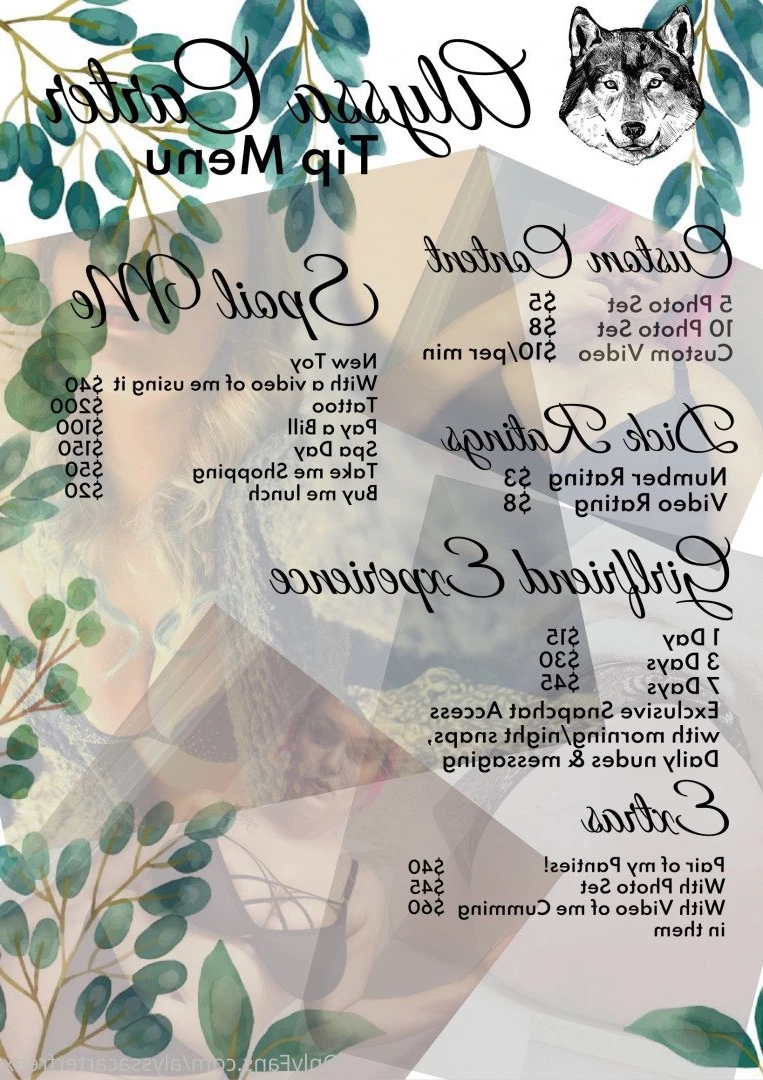 Alyssa Carter
Tip Menu
Custom Content
5 Photo Set $5
10 Photo Set $8
Custom Video $10/per min
Dick Ratings
Number Rating $3
Video Rating $8
Spoil Me
New Toy
With a video of me using it $40
Tattoo $200
Pay a Bill $100
Spa Day $150
Take me Shopping $50
Buy me lunch $20
Girlfriend Experience
1 Day $15
3 Days $30
7 Days $45
Exclusive Snapchat Access
with morning/night/snaps,
Daily nudes & messaging
Extras
Pair of my Panties! $40
With Photo Set $45
With Video of me Cumming $60
in them